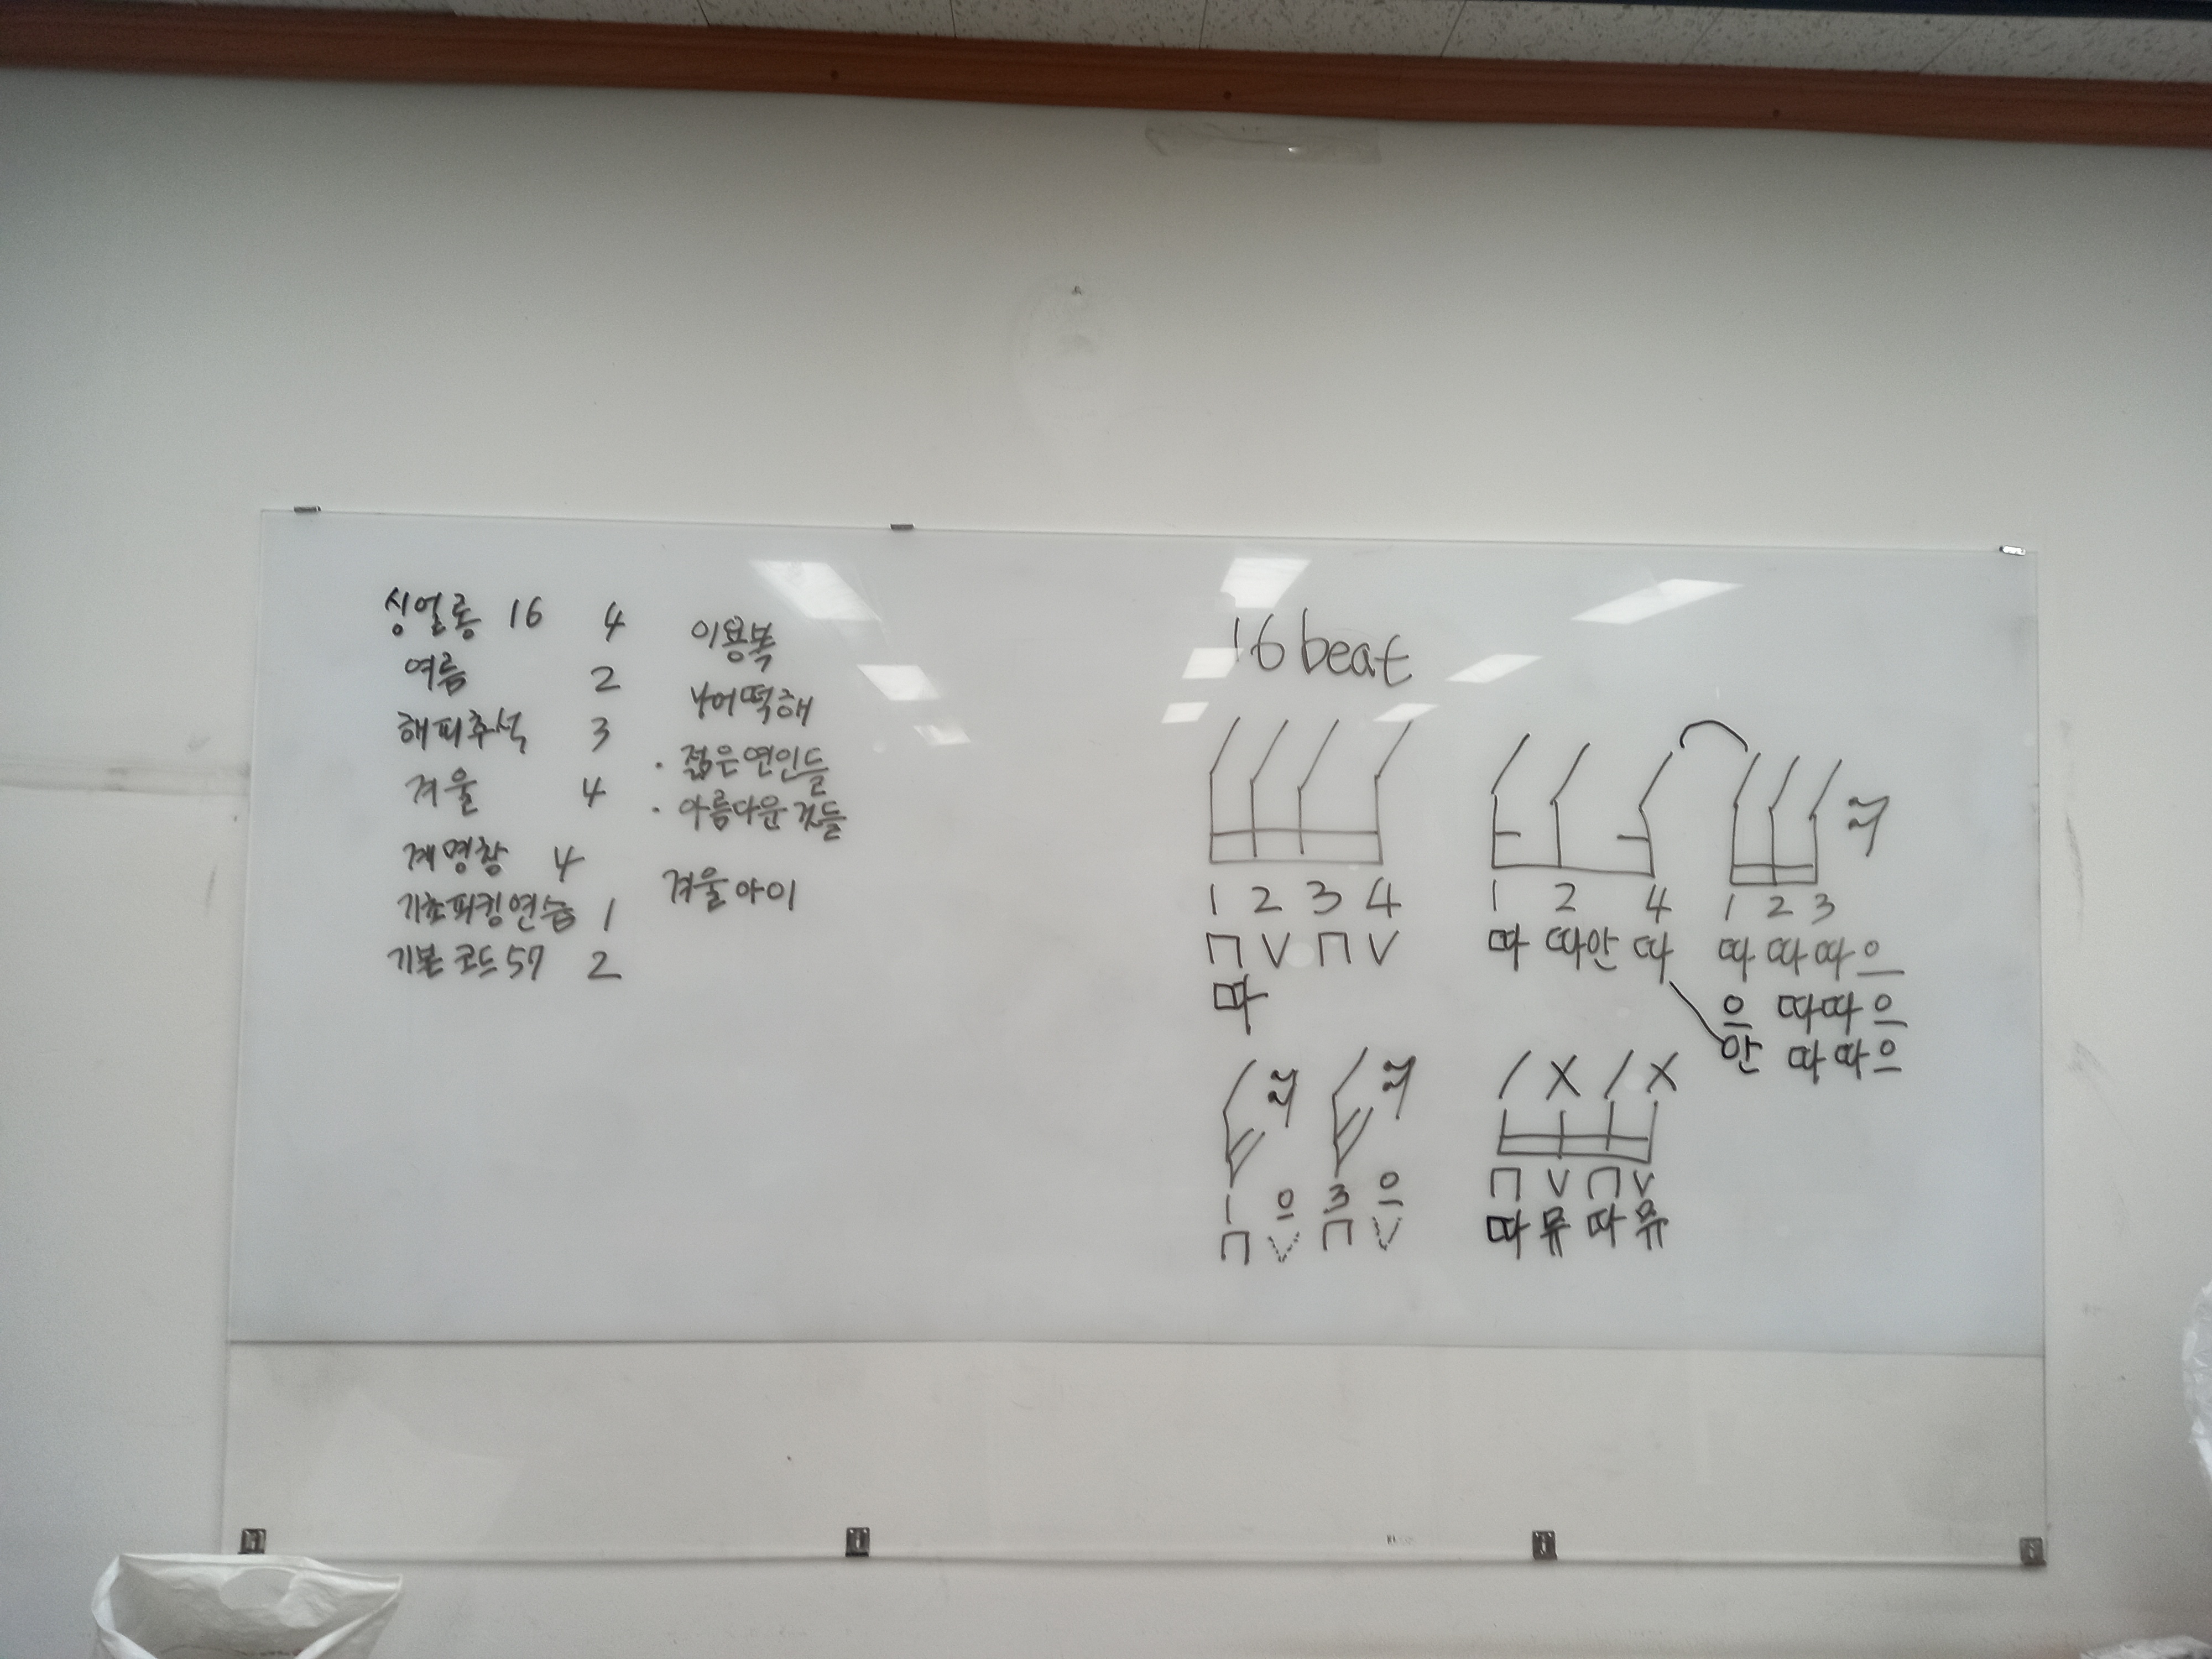 싱얼롱 16 4
여름 2
해피추석 3
겨울 4
계명창 4
기초피킹연습 1
기본 코드 57 2
이용복
나어떡해
· 젊은연인들
· 아름다운 것들
겨울아이
16 beat
1 2 3 4
ㄇ V ㄇ V
따
1 2 4
따 따안 따
1 2 3
따 따 따 으
으 따따 으
안 따 따 으
1 으 3 으
ㄇ V ㄇ V
ㄇ V ㄇ V
따 뮤 따 뮤